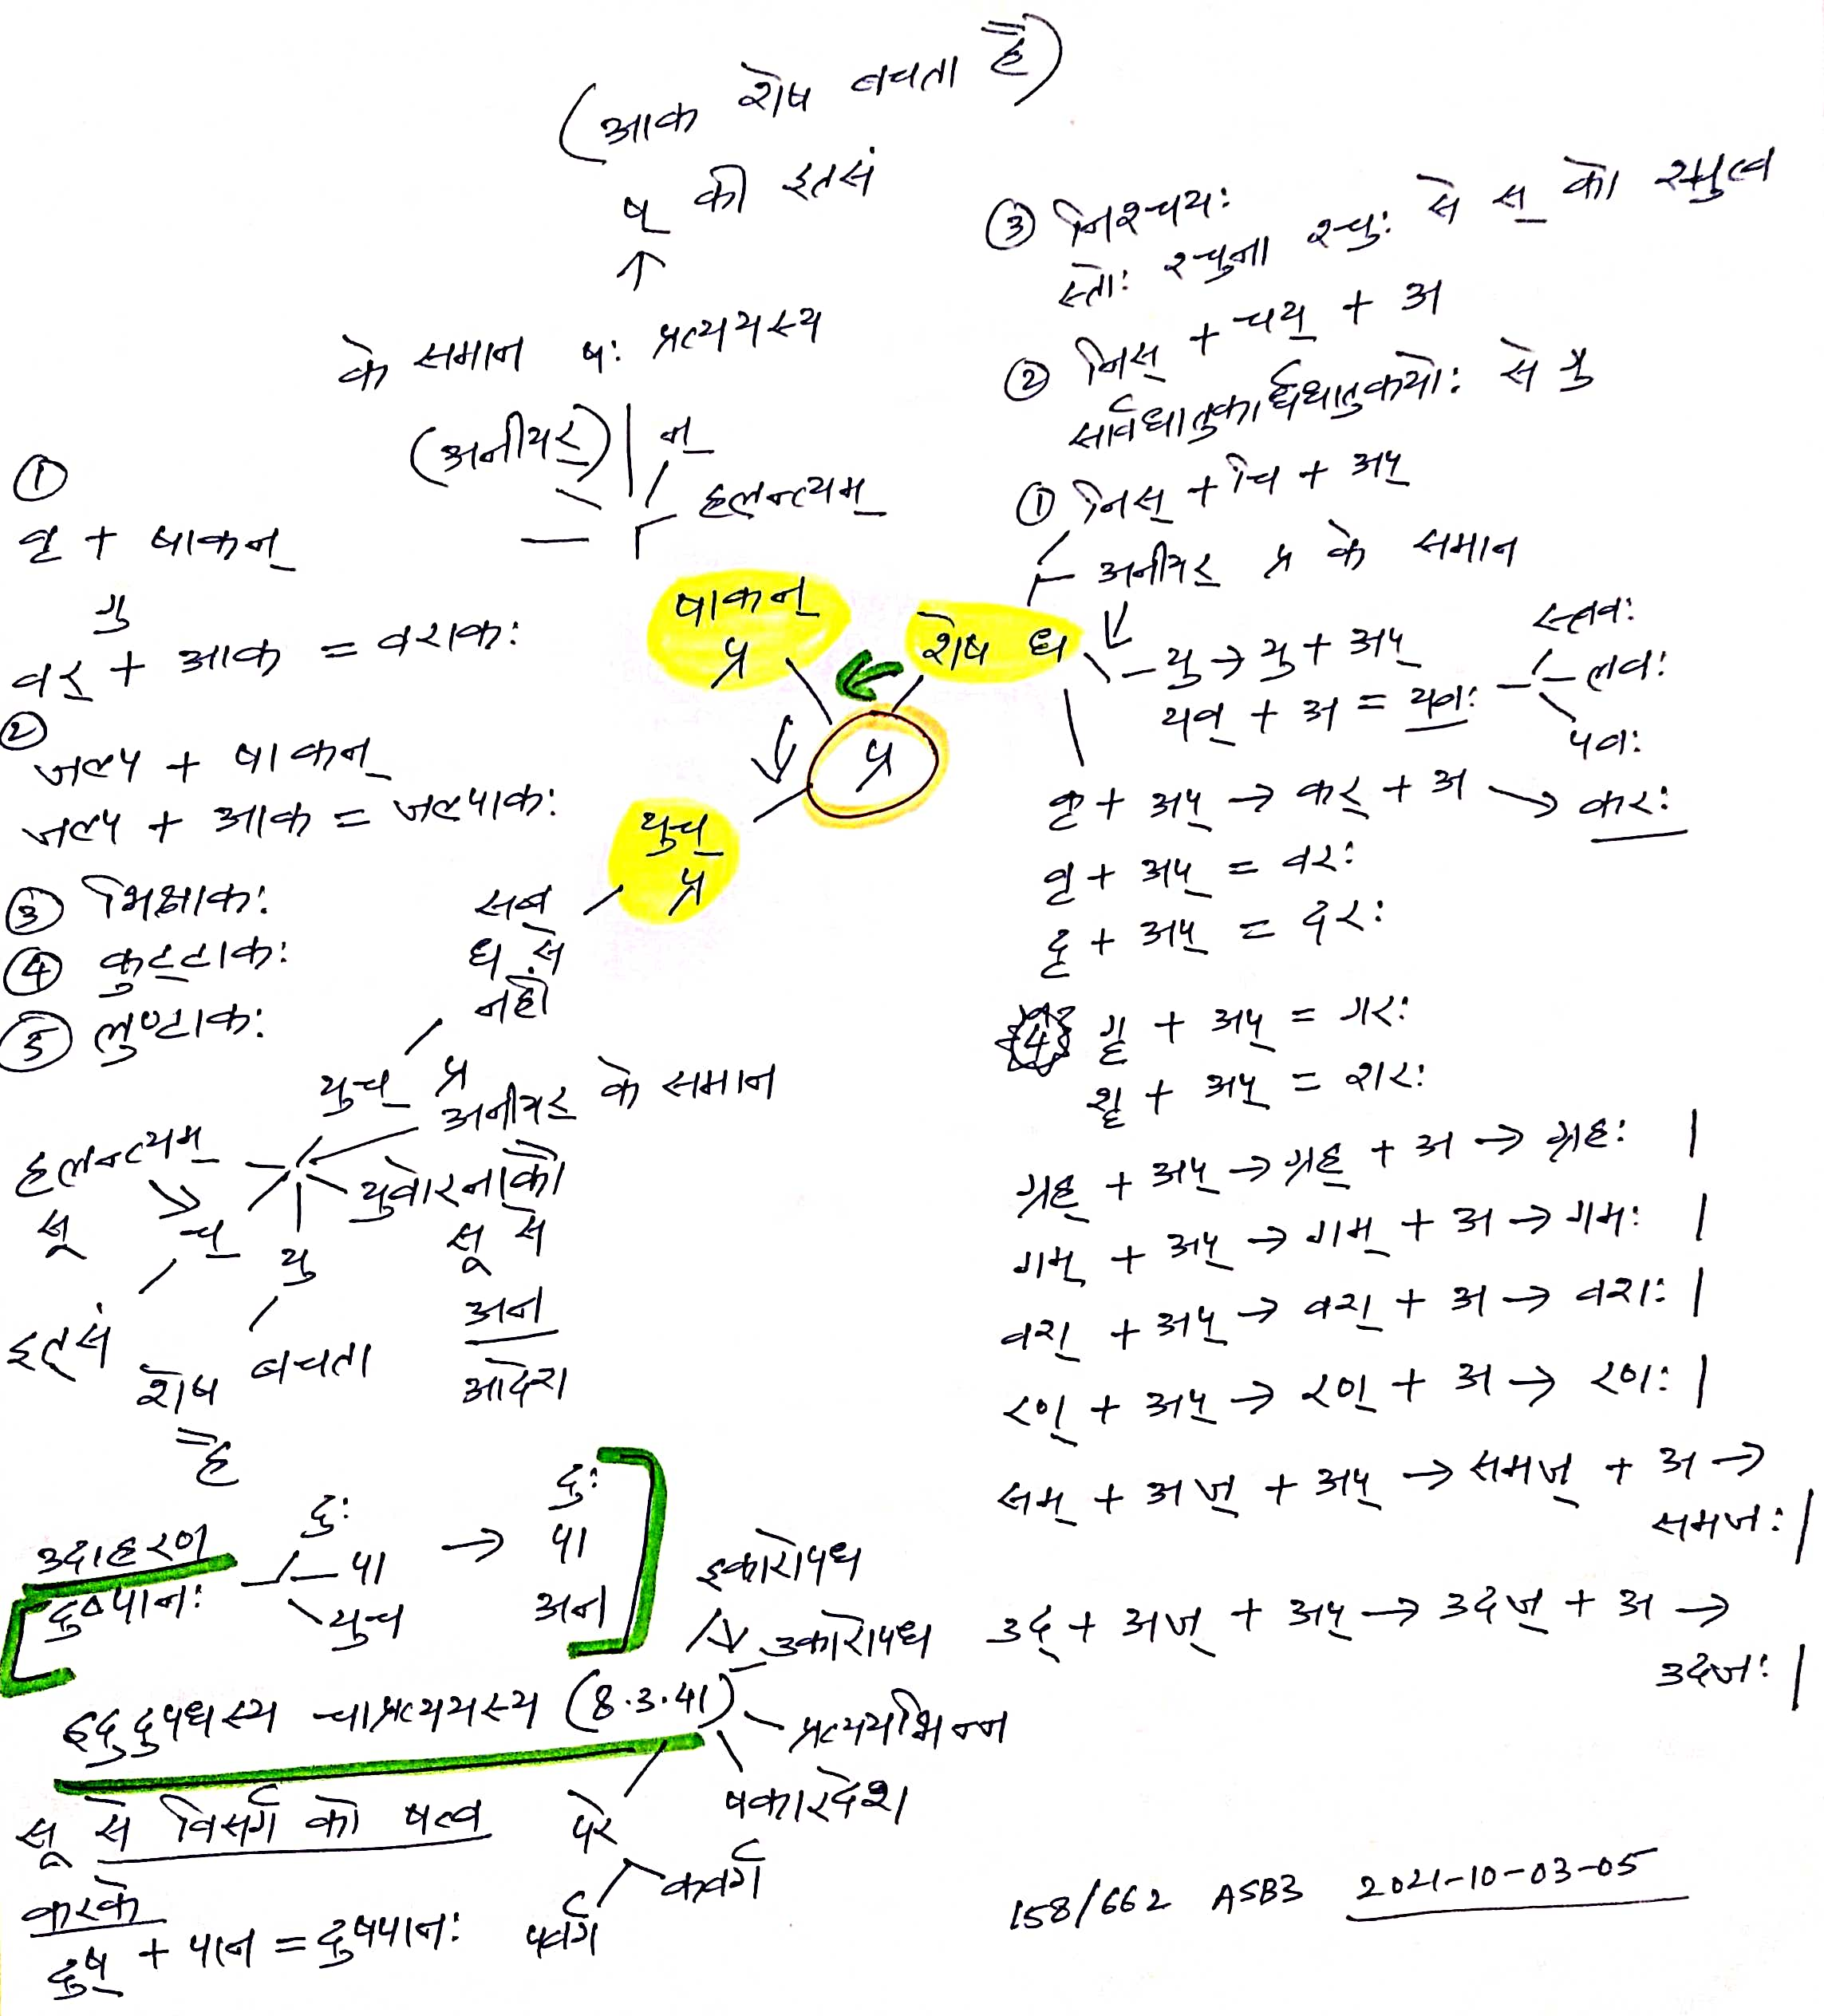 (आक शेष बचता है)
ष् की इत्सं
↑
के समान षः प्रत्ययस्य
(अनीयर्) | न्
हलन्त्यम्
①
वृ + षाकन्
गु
वर् + आक = वराकः
②
जल्प + षाकन्
जल्प + आक = जल्पाकः
③ भिक्षाकः
④ कुट्टाकः
⑤ लुण्टाकः
षाकन्
प्र
शेष ध
प्र
युच्
प्र
सब
ध से
नहीं
युच् प्र
अनीयर के समान
हलन्त्यम्
सू
च्
यु
युवोरनाकौ
सू से
अन
आदेश
इत्सं
शेष बचता
है
उदाहरण
दुष्पानः
दुः
पा
युच
→
दुः
पा
अन
इदुदुपधस्य चाप्रत्ययस्य (8.3.41)
इकारोपध
उकारोपध
प्रत्ययभिन्न
षकारदेश
परे
कवर्ग
पवर्ग
सू से विसर्ग को षत्व
करके
दुष् + पान = दुष्पानः
③ निश्चयः
स्तोः श्चुना श्चुः से स् को श्चुत्व
② निस् + चय् + अ
सार्वधातुकार्धधातुकयोः से गु
① निस् + चि + अप्
अनीयर् प्र के समान
यु → यु + अप्
यव् + अ = यवः
स्तवः
लवः
पवः
कृ + अप् → कर् + अ → करः
वृ + अप् = वरः
दृ + अप् = दरः
④ गृ + अप् = गरः
शृ + अप् = शरः
ग्रह् + अप् → ग्रह् + अ → ग्रहः |
गम् + अप् → गम् + अ → गमः |
वश् + अप् → वश् + अ → वशः |
रण् + अप् → रण् + अ → रणः |
सम् + अज् + अप् → समज् + अ →
समजः |
उद् + अज् + अप् → उदज् + अ →
उदजः |
158/662 ASB3 2021-10-03-05